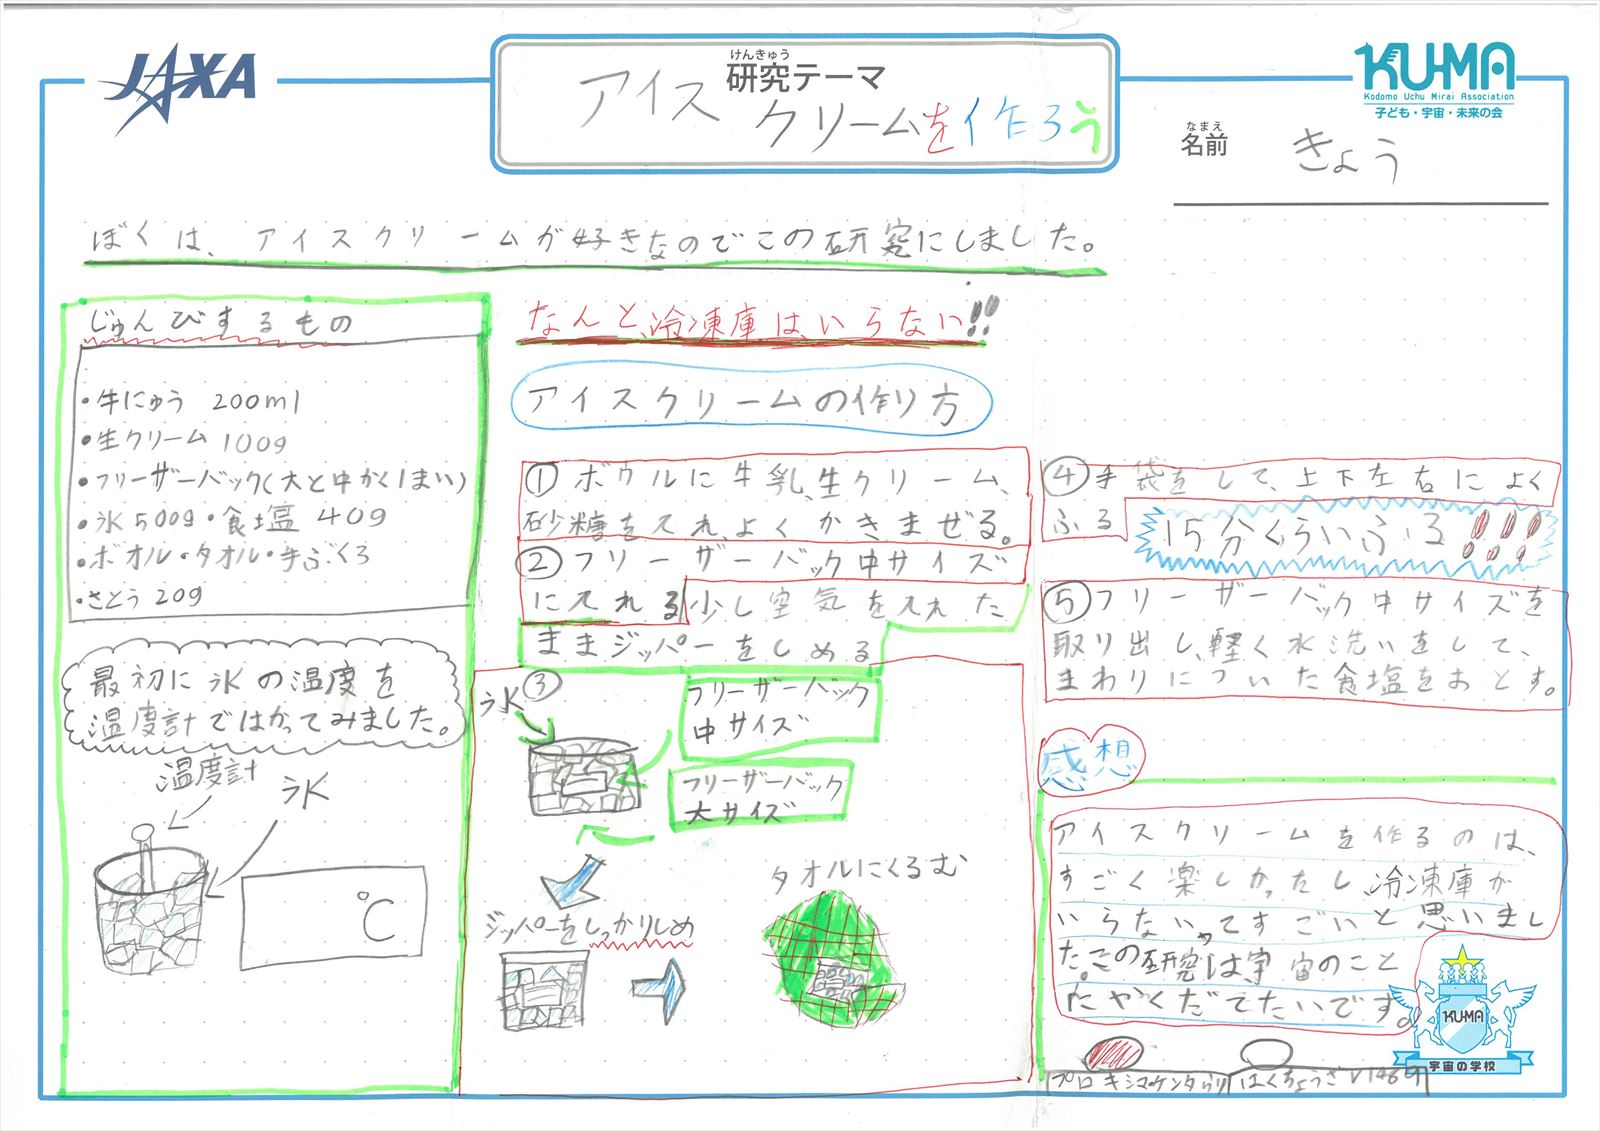 JAXA
けんきゅう
研究テーマ
アイス
クリームを作ろう
KU-MA
Kodomo Uchu Mirai Association
子ども・宇宙・未来の会
なまえ
名前
きょう
ぼくは、アイスクリームが好きなのでこの研究にしました。
じゅんびするもの
・牛にゅう 200ml
・生クリーム 100g
・フリーザーバック(大と中かく1まい)
・氷500g・食塩 40g
・ボオル・タオル・手ぶくろ
・さとう 20g
最初に氷の温度を
温度計ではかってみました。
温度計
氷
℃
なんと、冷凍庫はいらない!!
アイスクリームの作り方
①ボウルに牛乳、生クリーム、
砂糖を入れ、よくかきまぜる。
②フリーザーバック中サイズ
に入れる 少し空気を入れた
ままジッパーをしめる
③
氷
フリーザーバック
中サイズ
フリーザーバック
大サイズ
ジッパーをしっかりしめ
タオルにくるむ
④手袋をして、上下左右によく
ふる
15分くらいふる!!!
⑤フリーザーバック中サイズを
取り出し、軽く水洗いをして、
まわりについた食塩をおとす。
感想
アイスクリームを作るのは、
すごく楽しかったし冷凍庫が
いらないってすごいと思いまし
た。この研究は宇宙のこと
にやくだてたいです。
KUMA
宇宙の学校
プロキシマケンタウリ
はくちょうざV1489